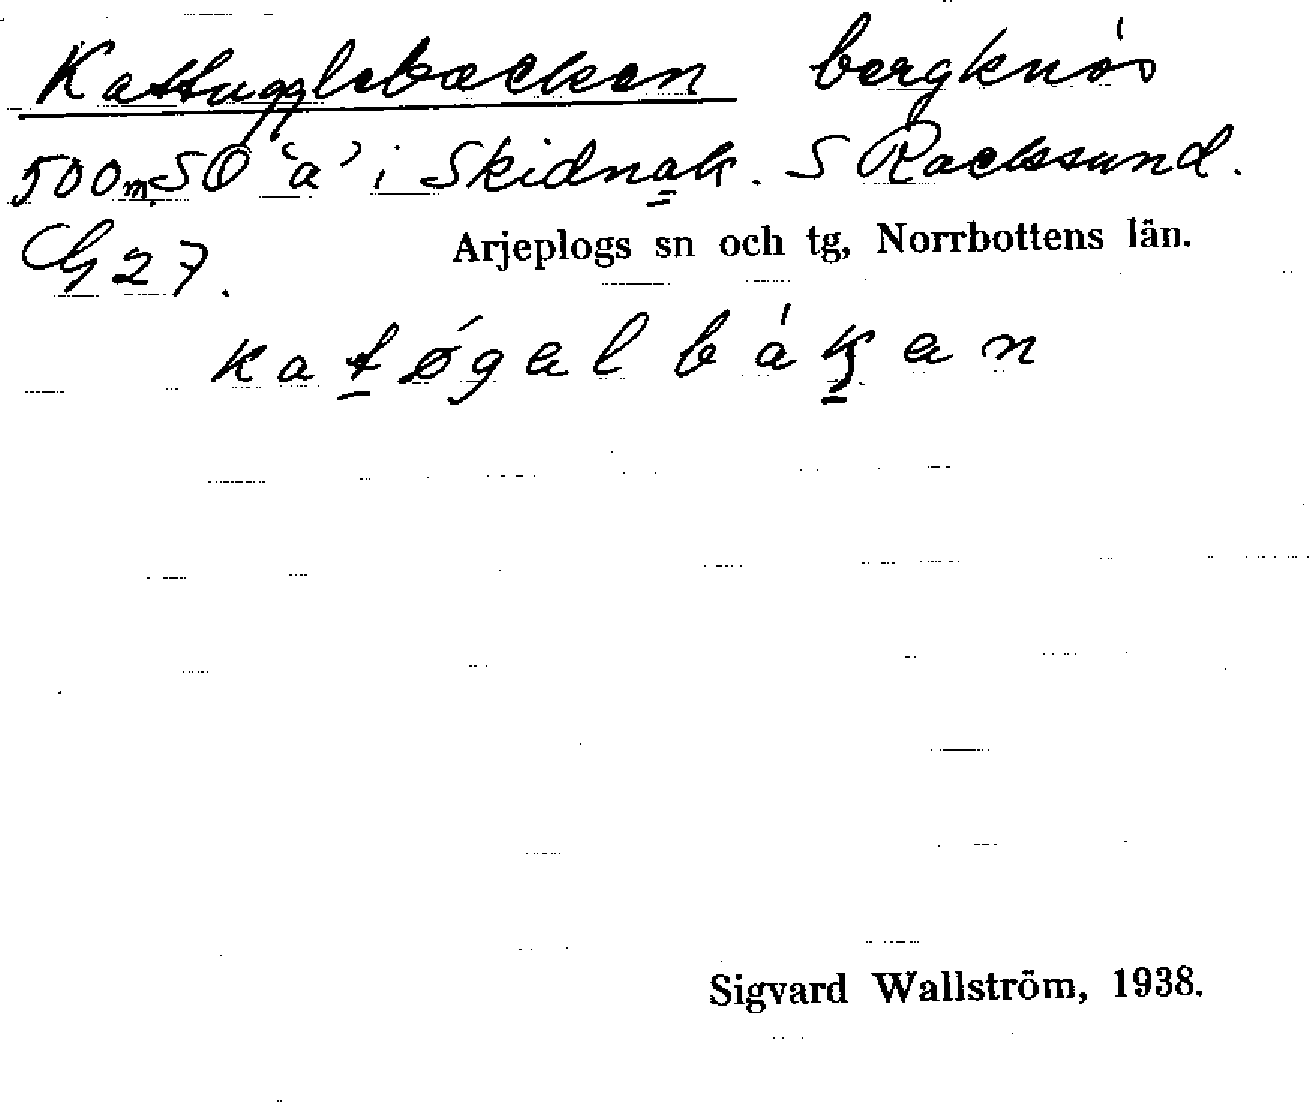 Kattugglebacken bergknös
500 m SO 'a' i Skidnak. S Racksund.
G 27.
Arjeplogs sn och tg, Norrbottens län.
katøgalbákan
Sigvard Wallström, 1938.